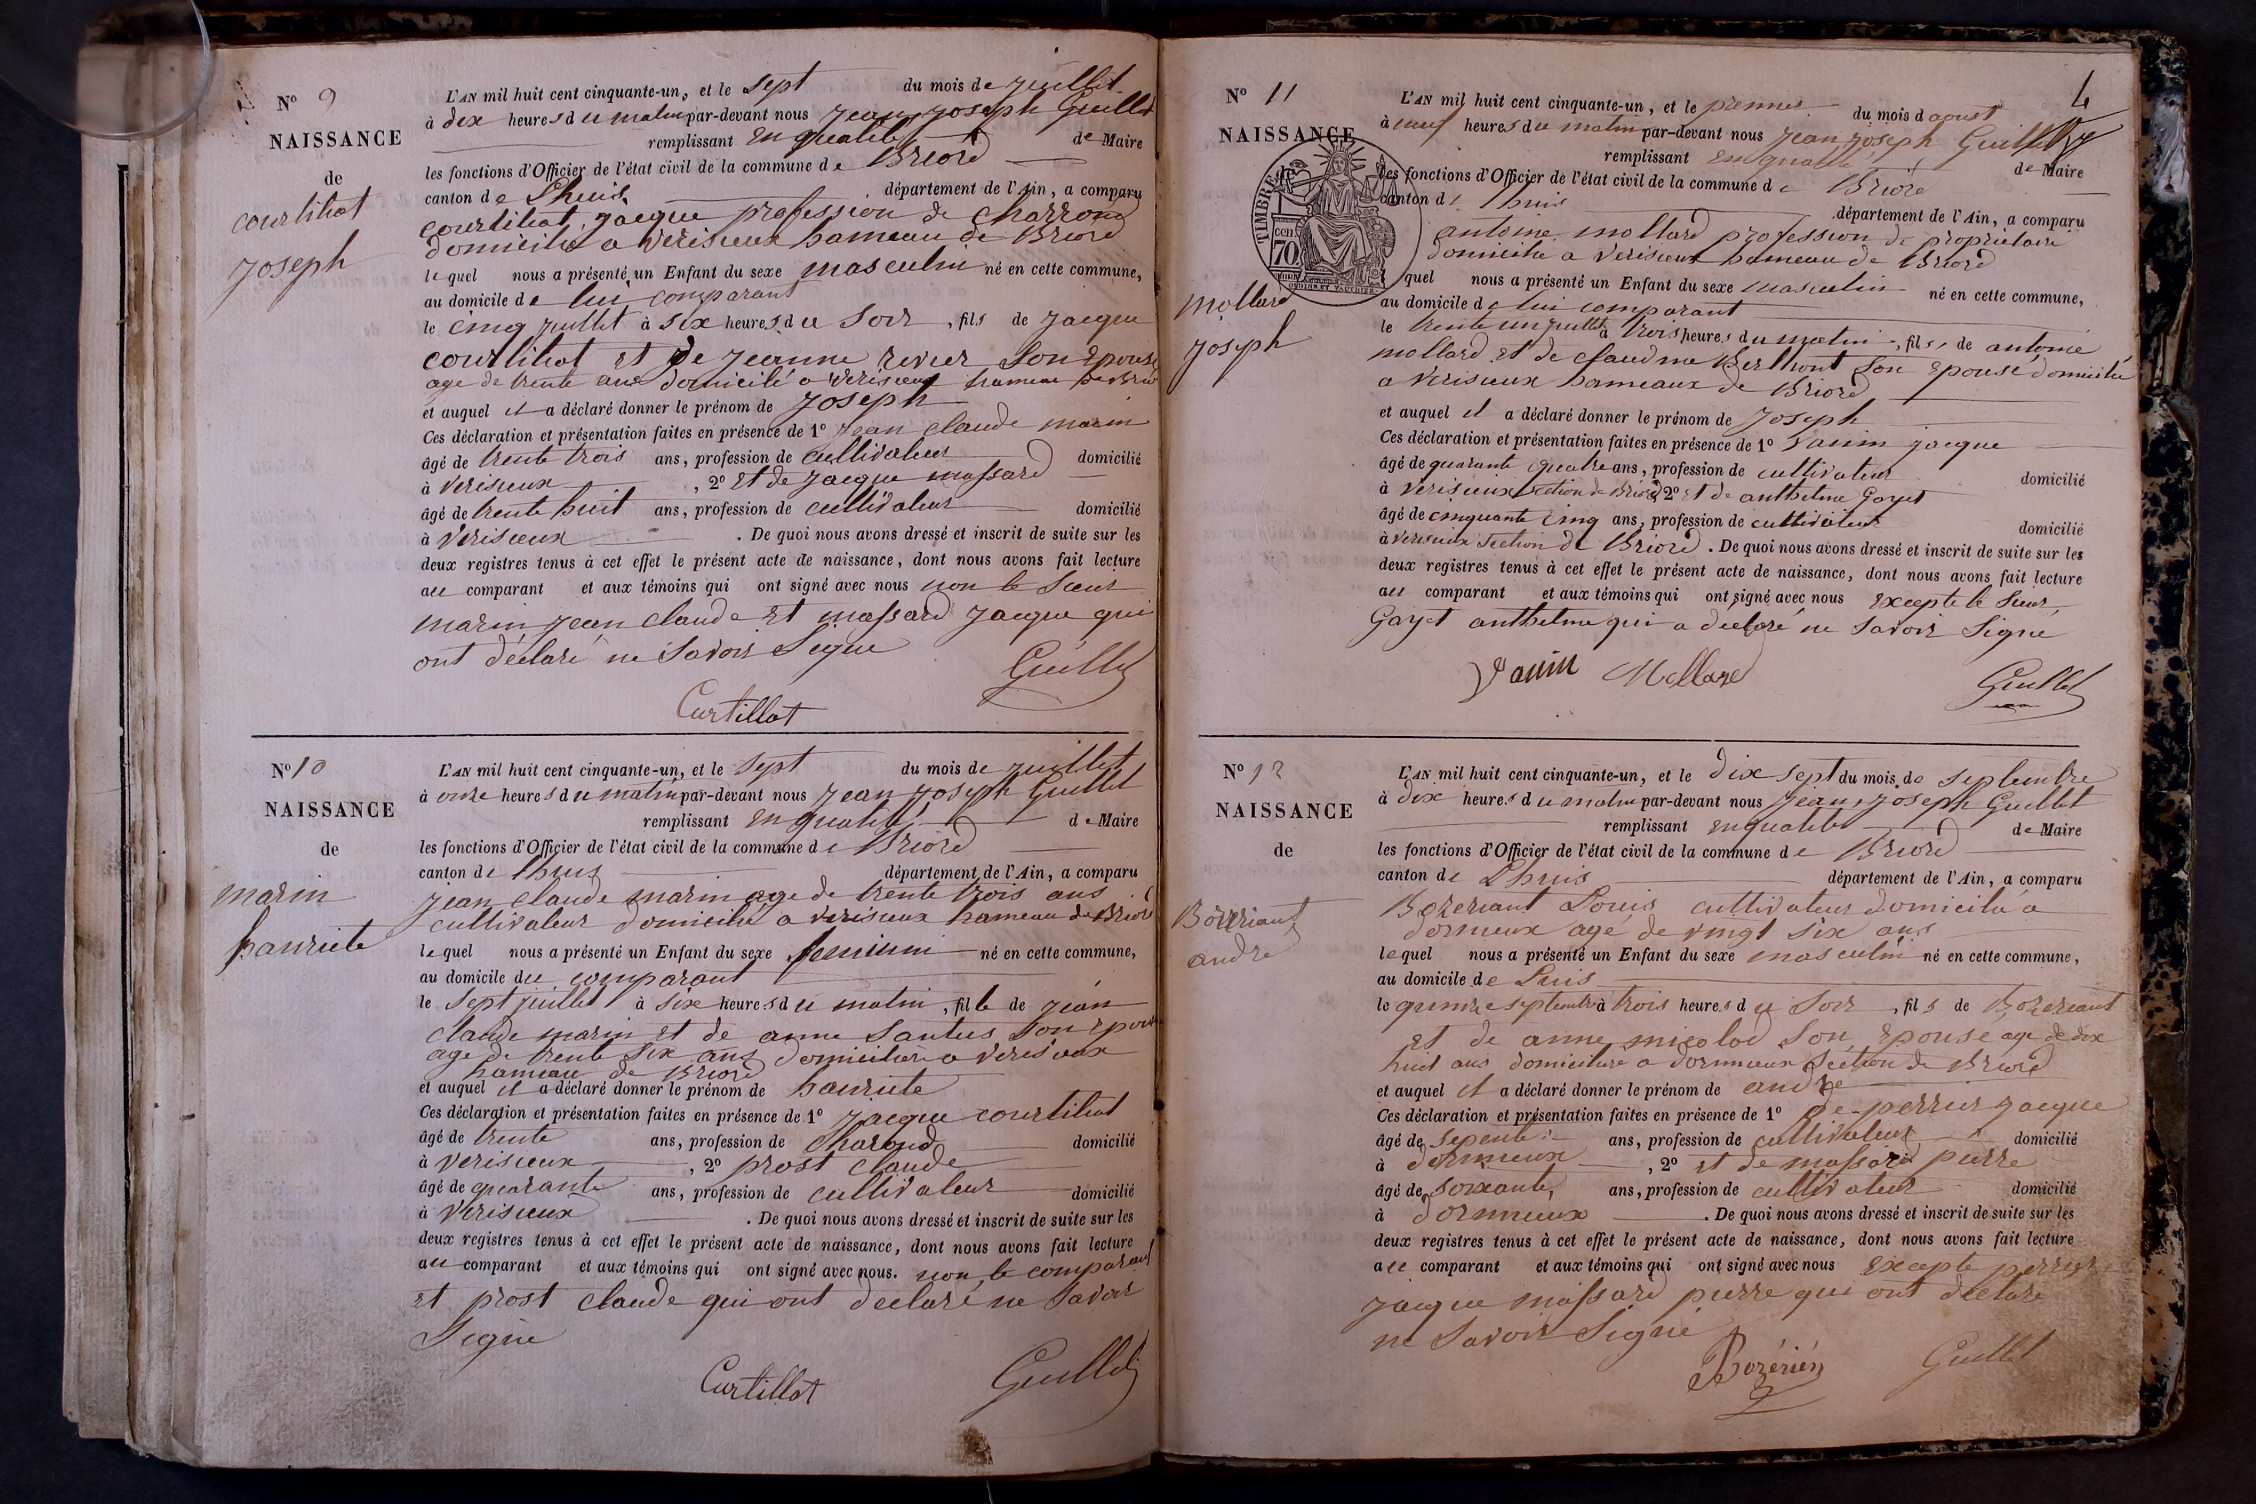 N° 9
NAISSANCE
de
courtibat
joseph
L'AN mil huit cent cinquante-un, et le sept du mois de juillet
à dix heures du matin par-devant nous jean joseph Guillet
remplissant en qualité de Maire
les fonctions d'Officier de l'état civil de la commune de Briord
canton de Lhuis département de l'Ain, a comparu
courtibat jacque profession de charrond
domicilié a verisieux hameau de Briord
lequel nous a présenté un Enfant du sexe masculin né en cette commune,
au domicile de lui comparant
le cinq juillet à six heures du soir, fils de jacque
courtibat et de jeanne revier son épouse
age de trente ans domicilé a verisieux hameau de Briord
et auquel il a déclaré donner le prénom de joseph
Ces déclaration et présentation faites en présence de 1° jean claude marin
âgé de trente trois ans, profession de cultivateur domicilié
à verisieux, 2° et de jacque massard
âgé de trente huit ans, profession de cultivateur domicilié
à verisieux. De quoi nous avons dressé et inscrit de suite sur les
deux registres tenus à cet effet le présent acte de naissance, dont nous avons fait lecture
au comparant et aux témoins qui ont signé avec nous non le sieur
marin jean claude et massard jacque qui
ont déclaré ne savoir signe
Guillet
Curtillat
N° 10
NAISSANCE
de
marin
hanriete
L'AN mil huit cent cinquante-un, et le sept du mois de juillet
à onze heures du matin par-devant nous jean joseph Guillet
remplissant en qualité de Maire
les fonctions d'Officier de l'état civil de la commune de Briord
canton de lhuis département de l'Ain, a comparu
jean claude marin age de trente trois ans
cultivateur domicilié a verisieux hameau de Briord
lequel nous a présenté un Enfant du sexe feminin né en cette commune,
au domicile du comparant
le sept juillet à six heures du matin, fille de jean
claude marin et de anne santus son epouse
age de trente six ans domiciliére a verisieux
hameau de Briord
et auquel il a déclaré donner le prénom de hanriete
Ces déclaration et présentation faites en présence de 1° jacque courtibat
âgé de trente ans, profession de charond domicilié
à verisieux, 2° prost claude
âgé de quarante ans, profession de cultivateur domicilié
à verisieux. De quoi nous avons dressé et inscrit de suite sur les
deux registres tenus à cet effet le présent acte de naissance, dont nous avons fait lecture
au comparant et aux témoins qui ont signé avec nous. non le comparant
et prost claude qui ont declaré ne savoir
signe
Curtillat
Guillet
4
N° 11
NAISSANCE
de
TIMBRE
70
mollard
joseph
L'AN mil huit cent cinquante-un, et le premier du mois d aoust
à neuf heures du matin par-devant nous jean joseph Guillet
remplissant en qualité de Maire
les fonctions d'Officier de l'état civil de la commune de Briord
canton de lhuis département de l'Ain, a comparu
antoine mollard profession de propriétaire
domicilié a verisieux hameau de Briord
quel nous a présenté un Enfant du sexe masculin né en cette commune,
au domicile de lui comparant
le trente un juillet à trois heures du matin, fils de antoine
mollard et de claudine Berthont son epouse domicilié
a verisieux hameaux de Briord
et auquel il a déclaré donner le prénom de joseph
Ces déclaration et présentation faites en présence de 1° vanin jacque
âgé de quarante quatre ans, profession de cultivateur domicilié
à verisieux section de Briord, 2° et de anthelme Gayet
âgé de cinquante cinq ans, profession de cultivateur domicilié
à verisieux section de Briord. De quoi nous avons dressé et inscrit de suite sur les
deux registres tenus à cet effet le présent acte de naissance, dont nous avons fait lecture
au comparant et aux témoins qui ont signé avec nous excepte le sieur
Gayet anthelme qui a declaré ne savoir signé
vanin Mollard
Guillet
N° 12
NAISSANCE
de
Bozeriant
andre
L'AN mil huit cent cinquante-un, et le dix sept du mois de septembre
à dix heures du matin par-devant nous jean joseph Guillet
remplissant en qualité de Maire
les fonctions d'Officier de l'état civil de la commune de Briord
canton de Lhuis département de l'Ain, a comparu
Bozeriant Louis cultivateur domicilié a
dornieux agé de vingt six ans
lequel nous a présenté un Enfant du sexe masculin né en cette commune,
au domicile de Luis
le quinze septembre à trois heures du soir, fils de Bozeriant
et de anne micolod son epouse age de dix
huit ans domiciliere a dornieux section de Briord
et auquel il a déclaré donner le prénom de andré
Ces déclaration et présentation faites en présence de 1° de perrier jacque
âgé de sepente ans, profession de cultivateur domicilié
à dornieux, 2° et de massard pierre
âgé de soixante, ans, profession de cultivateur domicilié
à dornieux. De quoi nous avons dressé et inscrit de suite sur les
deux registres tenus à cet effet le présent acte de naissance, dont nous avons fait lecture
au comparant et aux témoins qui ont signé avec nous excepte perrier
jacque massard pierre qui ont déclaré
ne savoir signé
Bozérién
Guillet